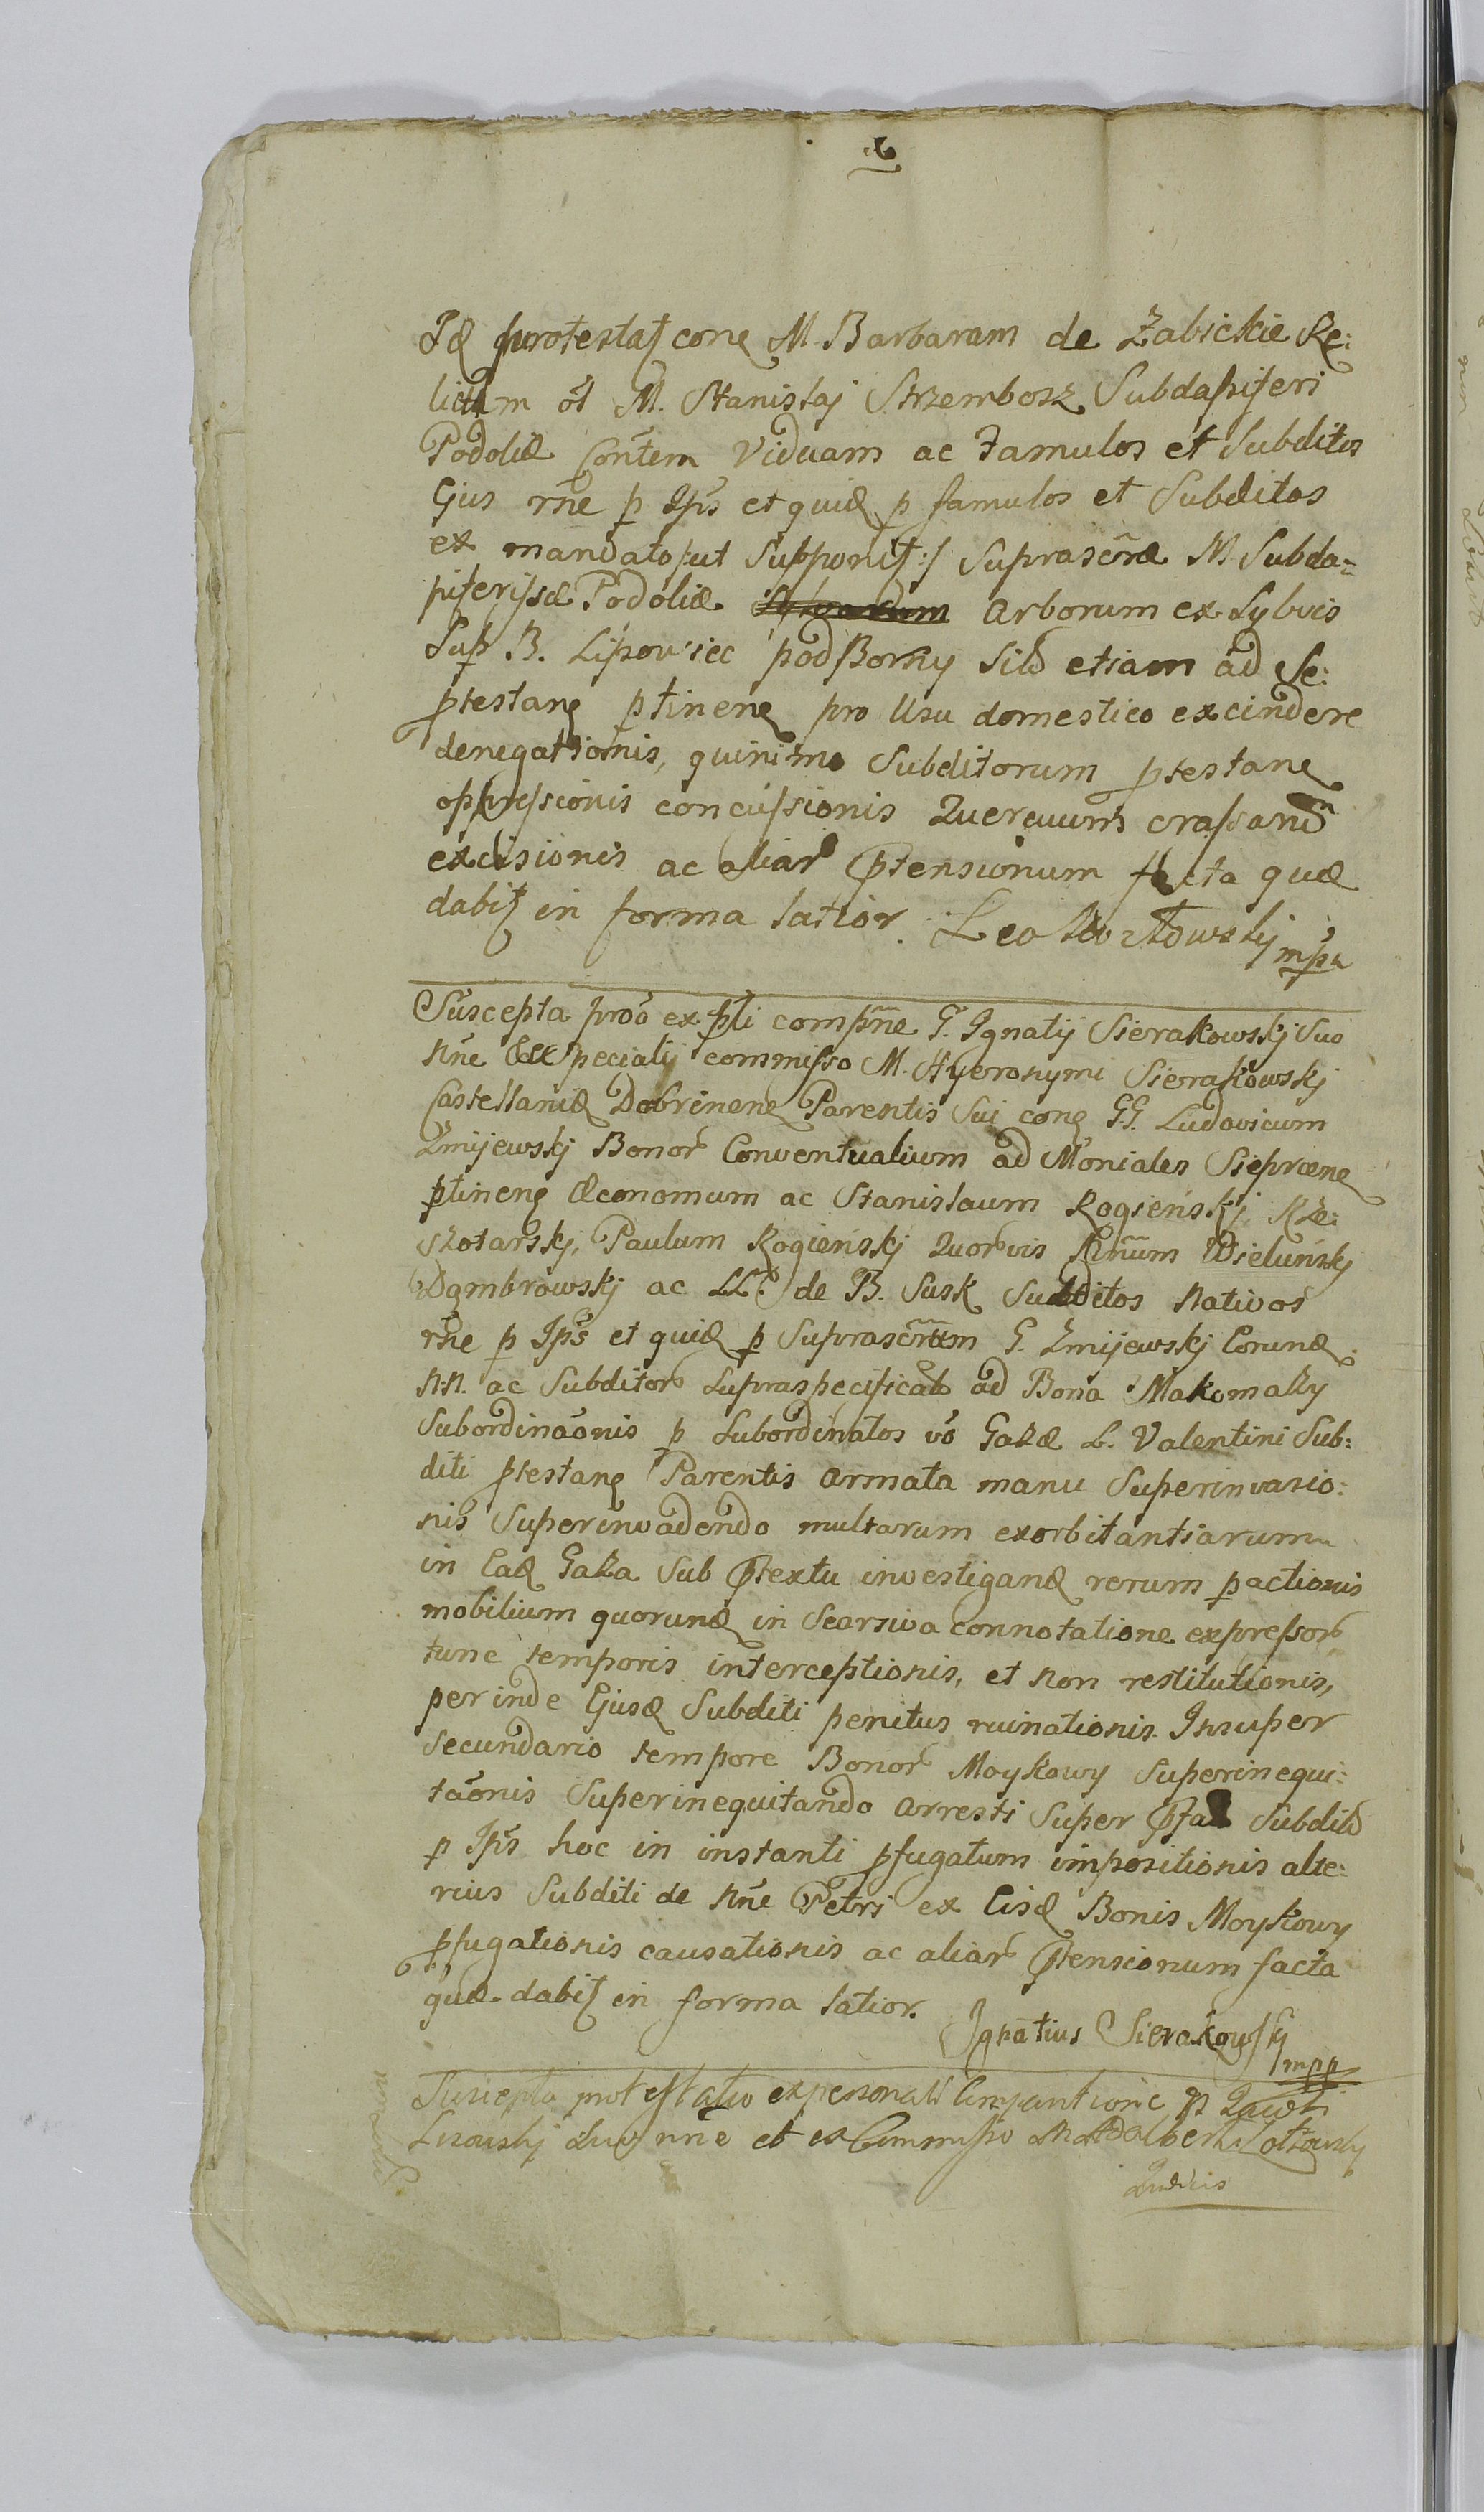 6
Id protestat conc M. Barbaram de Zabickie Re:
lictam ol M. Stanislaj Strzembosz Subdapiferi
Podoliæ Contem Viduam ac Famulos et Subditos
Ejus rne p Ips et quid p famulos et Subditos
ex mandato ut Supponit :/ Suprascræ M. Subda=
piferissæ Podoliæ Arborum ex Sylvis
Sup B. Lipowiec podBorny Sild etiam ad Se:
ptestang ptineng pro Usu domestico excindere
denegationis, quinimo Subditorum ptestang
oppressionis concussionis Quercuum crassarum
excisionis ac aliar ptensionum facta quæ
dabit in forma latior. Leo mpa
Suscepta proõ ex psli compñne G. Ignatij Sierakowskj Suo
Nñe et speciali commisso M. Hyeronymi Sierakowskj
Castellanid Dobrineng Parentis Sui conc GG. Ludovicum
Zmijewskj Bonor Conventualium ad Moniales Sieprceng
ptineng Œconomum ac Stanislaum Rogieńskj, Rze:
szotarskj, Paulum Rogieńskj Quorvis Wieluńskj
Dąmbrowskj ac LL. de B. Susk Subditos Nativos
rñe p Ips et quid p Suprascrtum G. Zmijewskj Eorund
N.N. ac Subditor Supraspecificat ad Bona Makomazy
Subordinaõnis p Subordinatos võ Gazæ L. Valentini Sub:
diti ptestang Parentis Armata manu Superinvasio:
nis Superinvadendo multarum exorbitantiarum
in Ead Gaza Sub ptextu investigand rerum pactionis
mobilium quorund in Seorsiva connotatione expressor
tunc temporis interceptionis, et non restitutionis,
perinde Ejusd Subditi penitus ruinationis. Insuper
Secundario tempore Bonor Moykowy Superinequi:
taõnis Superinequitando Arresti Super pfat Subdito
p Ips hoc in instanti pfugatum impositionis alte:
rius Subditi de Nñe Petri ex Eisd Bonis Moykowy
pfugationis causationis ac aliar ptensionum facta
quæ dabit in forma latior.
Ignatius Sierakowsky
mpp
Suscepta protestatio ex personali Comparitione
Suo nne et ex Commisso M. Adalberti
Judicis